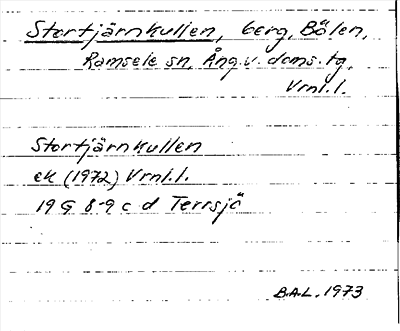 Stortjärnkullen, berg, Bölen,
Ramsele sn, Ång. v. doms. tg,
Vrnl. l.
Stortjärnkullen
ek (1972) Vrnl. l.
19 G 8-9 c d Terrsjö
B.A.L. 1973